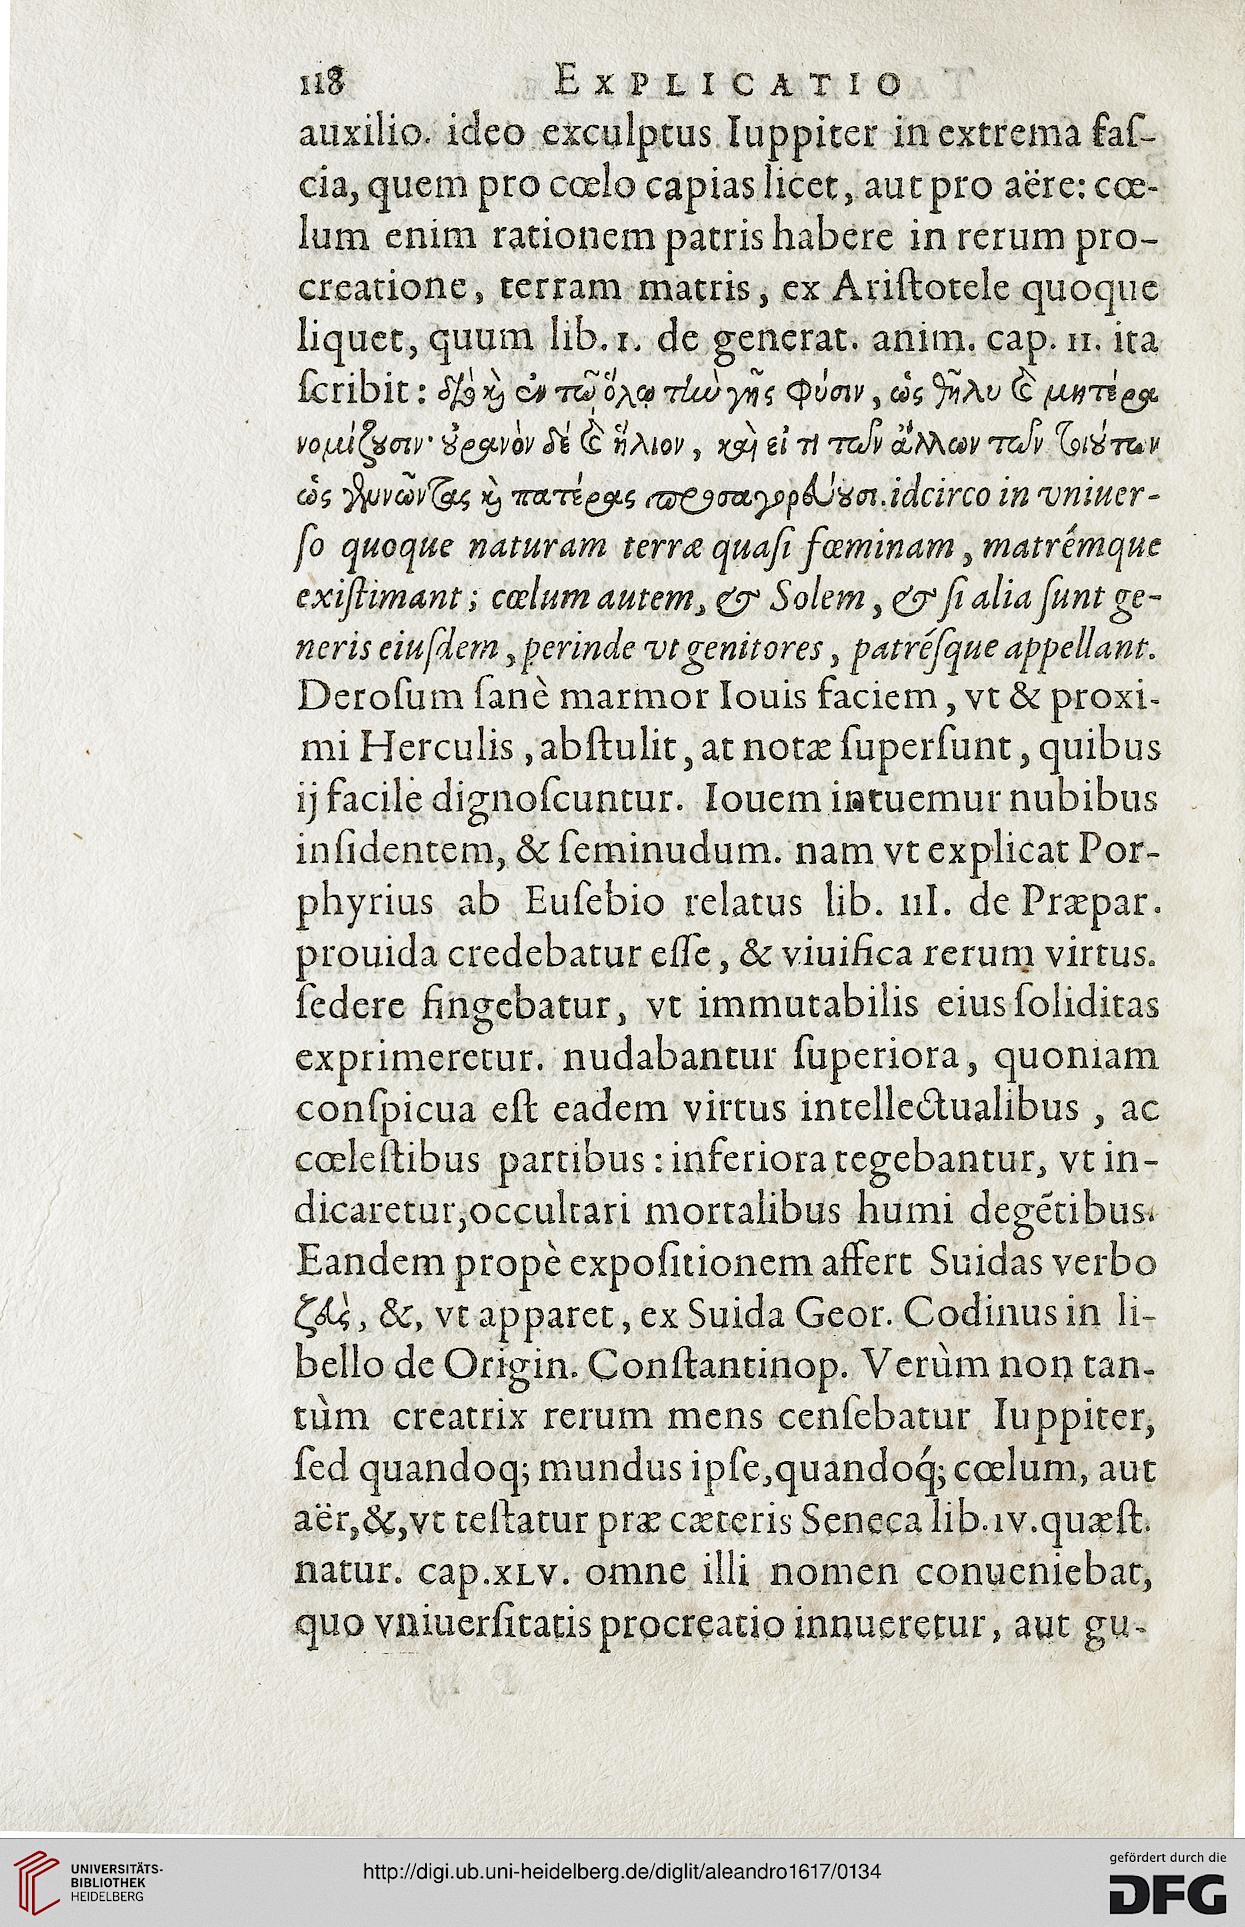 118 EXPLICATIO
auxilio. ideo exculptus Iuppiter in extrema faſ-
cia, quem pro cœlo capias licet, aut pro aëre: cœ-
lum enim rationem patris habere in rerum pro-
creatione, terram matris, ex Ariſtotele quoque
liquet, quum lib. I. de generat. anim. cap. II. ita
ſcribit: διὸ καὶ ἐν τῷ ὅλῳ τὴν γῆς φύσιν, ὡς θῆλυ καὶ μητέρα
νομίζουσιν· οὐρανὸν δέ καὶ ἥλιον, καὶ εἴ τι τῶν ἄλλων τῶν τοιούτων
ὡς γεννῶντας καὶ πατέρας προσαγορεύουσι. idcirco in vniuer-
ſo quoque naturam terræ quaſi fœminam, matrémque
exiſtimant; cœlum autem, & Solem, & ſi alia ſunt ge-
neris eiuſdem, perinde vt genitores, patréſque appellant.
Deroſum ſanè marmor Iouis faciem, vt & proxi-
mi Herculis, abſtulit, at notæ ſuperſunt, quibus
ij facilè dignoſcuntur. Iouem intuemur nubibus
inſidentem, & ſeminudum. nam vt explicat Por-
phyrius ab Euſebio relatus lib. III. de Præpar.
prouida credebatur eſſe, & viuifica rerum virtus.
ſedere fingebatur, vt immutabilis eius ſoliditas
exprimeretur. nudabantur ſuperiora, quoniam
conſpicua eſt eadem virtus intellectualibus, ac
cœleſtibus partibus: inferiora tegebantur, vt in-
dicaretur, occultari mortalibus humi degẽtibus.
Eandem propè expoſitionem affert Suidas verbo
ζεὺς, &, vt apparet, ex Suida Geor. Codinus in li-
bello de Origin. Conſtantinop. Verùm non tan-
tùm creatrix rerum mens cenſebatur Iuppiter,
ſed quandoq; mundus ipſe, quandoq́; cœlum, aut
aër, &, vt teſtatur præ cæteris Seneca lib. IV. quæſt.
natur. cap. XLV. omne illi nomen conueniebat,
quo vniuerſitatis procreatio innueretur, aut gu-
UNIVERSITÄTS-
BIBLIOTHEK
HEIDELBERG
http://digi.ub.uni-heidelberg.de/diglit/aleandro1617/0134
gefördert durch die
DFG